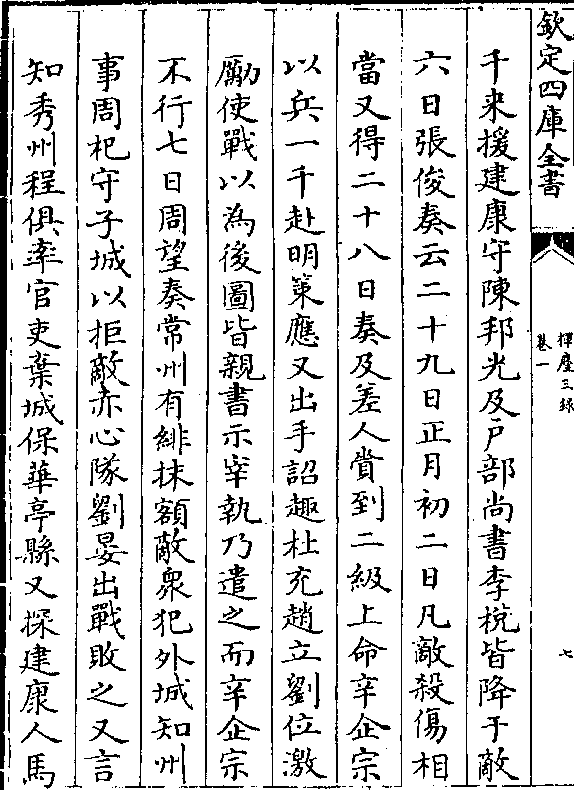 欽定四庫全書
揮麈三錄
卷一
七
千来援建康守陳邦光及戶部尚書李梲皆降于敵
六日張俊奏云二十九日正月初二日凡敵殺傷相
當又得二十八日奏及差人賫到二級上命辛企宗
以兵一千赴明策應又出手詔趣杜充趙立劉位激
勵使戰以為後圖皆親書示宰執乃遣之而辛企宗
不行七日周望奏常州有緋抹額敵衆犯外城知州
事周杞守子城以拒敵亦心隊劉晏出戰敗之又言
知秀州程俱率官吏棄城保華亭縣又探建康人馬